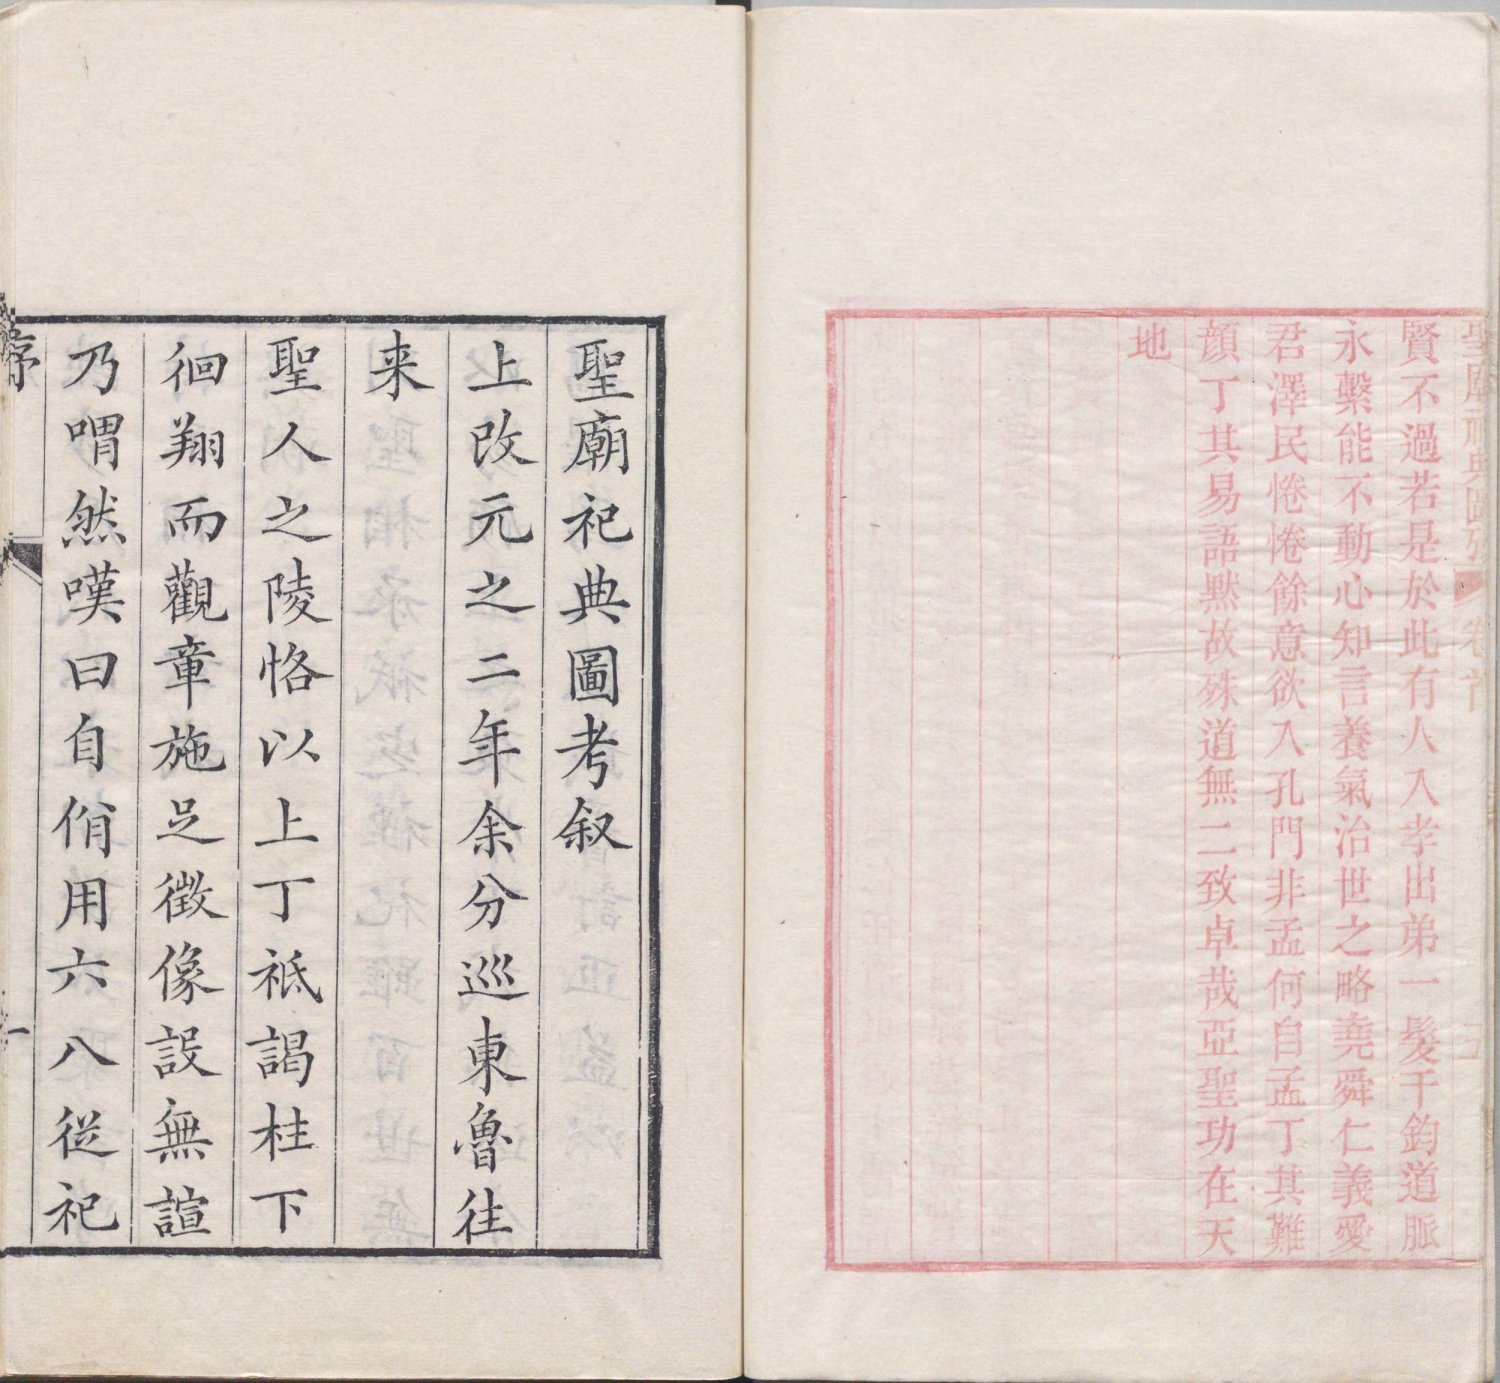 聖廟祀典圖攷
卷首
五
賢不過若是於此有人入孝出弟一髮千鈞道脈
永繫能不動心知言養氣治世之略堯舜仁義愛
君澤民惓惓餘意欲入孔門非孟何自孟丁其難
顏丁其易語默故殊道無二致卓哉亞聖功在天
地
聖廟祀典圖考叙
上改元之二年余分巡東魯往
来
聖人之陵恪以上丁祗謁柱下
徊翔而觀章施㞢徵像設無諠
乃喟然嘆曰自俏用六八從祀
序
一